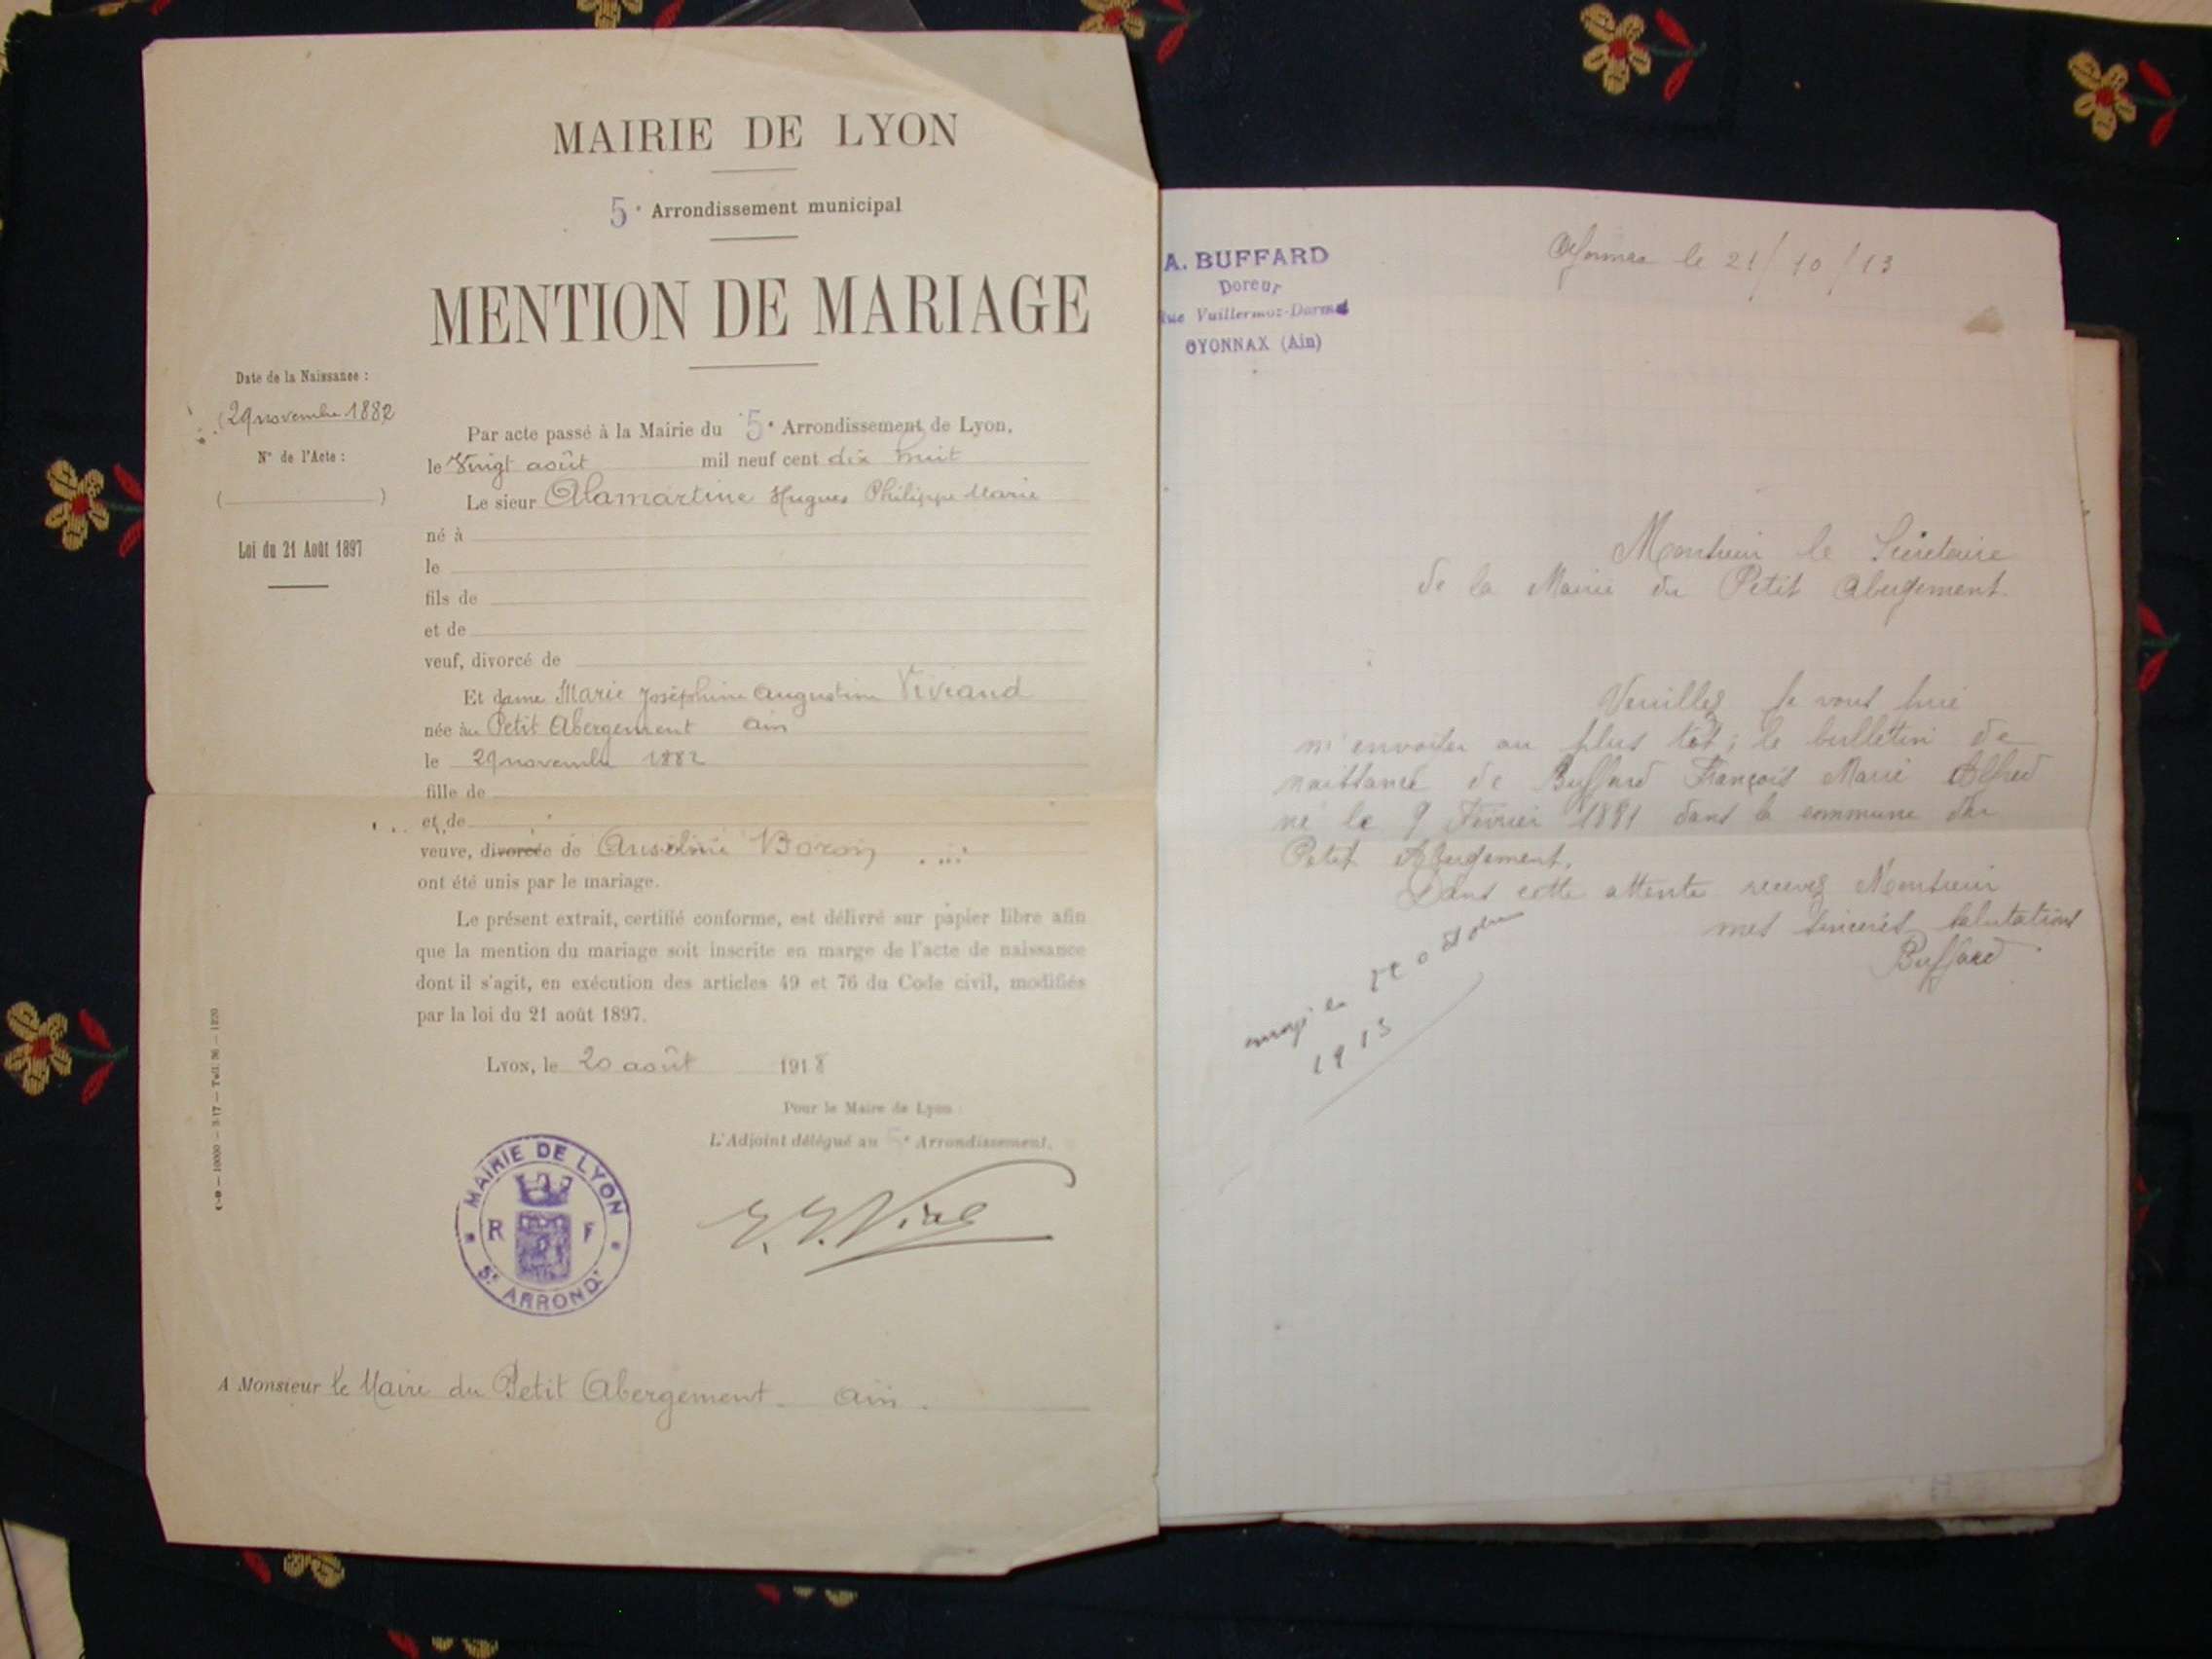 MAIRIE DE LYON
5e Arrondissement municipal
MENTION DE MARIAGE
Date de la Naissance :
(29 novembre 1882
N° de l'Acte :
( )
Loi du 21 Août 1897
Par acte passé à la Mairie du 5e Arrondissement de Lyon,
le Vingt août mil neuf cent dix huit
Le sieur Alamartine Hugues Philippe Marie
né à
le
fils de
et de
veuf, divorcé de
Et dame Marie Joséphine Augustine Viviand
née au Petit Abergement Ain
le 29 novembre 1882
fille de
et de
veuve, divorcée de
ont été unis par le mariage.
Le présent extrait, certifié conforme, est délivré sur papier libre afin
que la mention du mariage soit inscrite en marge de l'acte de naissance
dont il s'agit, en exécution des articles 49 et 76 du Code civil, modifiés
par la loi du 21 août 1897.
Lyon, le 20 août 1918
Pour le Maire de Lyon :
L'Adjoint délégué au 5e Arrondissement,
MAIRIE DE LYON
R F
5e ARRONDt
A Monsieur le Maire du Petit Abergement. Ain.
A. BUFFARD
Doreur
Rue Vuillermoz-Dormet
OYONNAX (Ain)
Oyonnax le 21/10/13
Monsieur le Secretaire
de la Mairie du Petit Abergement.
Veuillez je vous prie
m'envoyer au plus tôt ; le bulletin de
naissance de Buffard François Marie Alfred
né le 9 Février 1881 dans la commune du
Petit Abergement.
Dans cette attente recevez Monsieur
mes sincères salutations
Buffard
1913